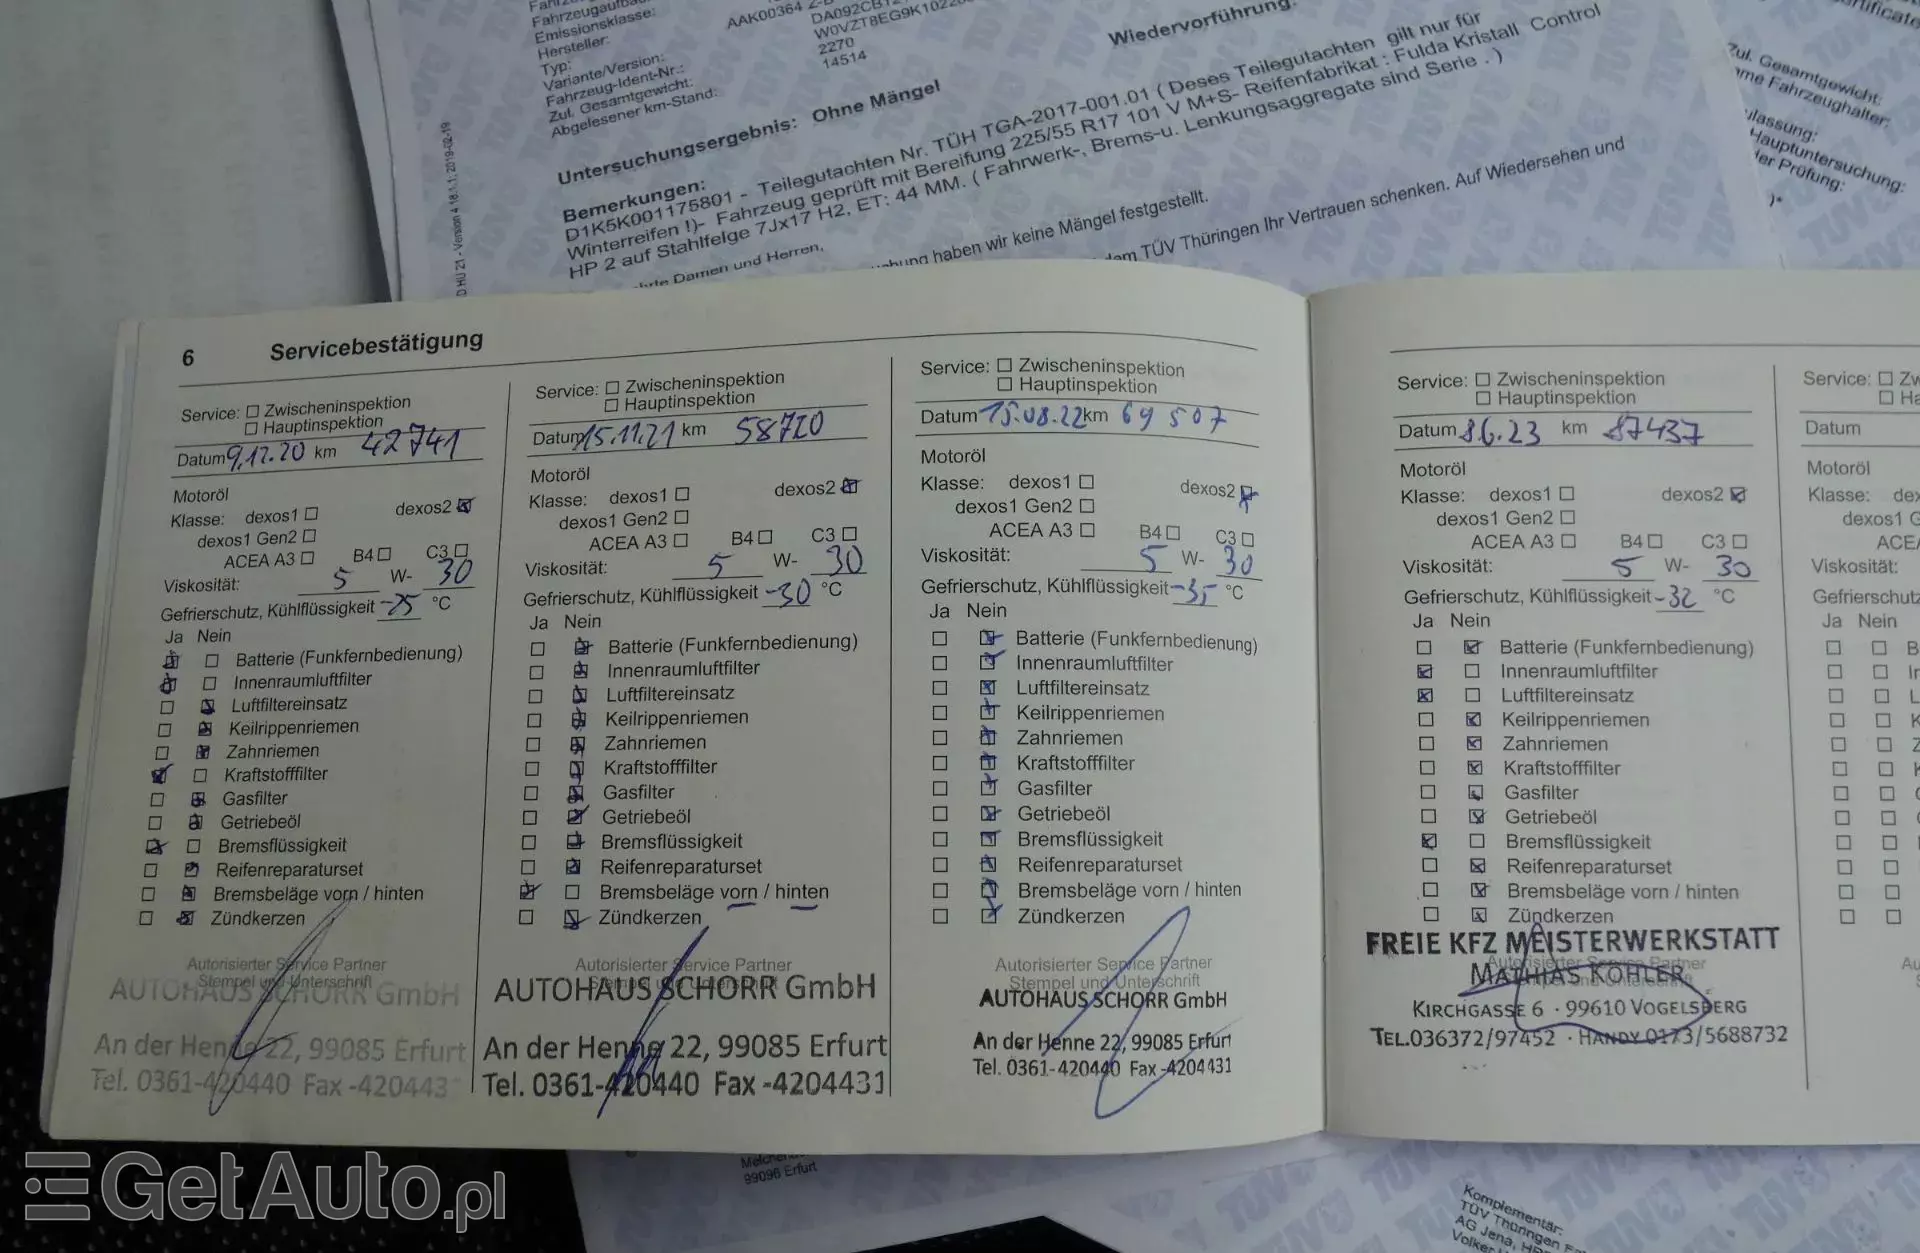 Emissionsklasse:
Hersteller:
Typ:
Variante/Version:
Fahrzeug-Ident-Nr.:
Zul. Gesamtgewicht:
Abgelesener km-Stand:
AAK00364
2270
14514
Wiedervorführung:
Untersuchungsergebnis: Ohne Mängel
Bemerkungen:
D1K5K001175801 - Teilegutachten Nr. TÜH TGA-2017-001.01 ( Deses Teilegutachten gilt nur für
Winterreifen !)- Fahrzeug geprüft mit Bereifung 225/55 R17 101 V M+S- Reifenfabrikat : Fulda Kristall Control
HP 2 auf Stahlfelge 7Jx17 H2, ET: 44 MM. ( Fahrwerk-, Brems-u. Lenkungsaggregate sind Serie . )
Damen und Herren,
haben wir keine Mängel festgestellt.
TÜV Thüringen Ihr Vertrauen schenken. Auf Wiedersehen und
D HU 21 - Version 4.18.1.1; 2019-02-19
Zul. Gesamtgewicht:
Fahrzeughalter:
Hauptuntersuchung:
Prüfung:
6 Servicebestätigung
Service: Zwischeninspektion
Hauptinspektion
Datum 9.12.20 km 42741
Motoröl
Klasse: dexos1 dexos2
dexos1 Gen2
ACEA A3 B4 C3
Viskosität: 5 W- 30
Gefrierschutz, Kühlflüssigkeit -25 °C
Ja Nein
Batterie (Funkfernbedienung)
Innenraumluftfilter
Luftfiltereinsatz
Keilrippenriemen
Zahnriemen
Kraftstofffilter
Gasfilter
Getriebeöl
Bremsflüssigkeit
Reifenreparaturset
Bremsbeläge vorn / hinten
Zündkerzen
Autorisierter Service Partner
Stempel und Unterschrift
AUTOHAUS SCHORR GmbH
An der Henne 22, 99085 Erfurt
Tel. 0361-420440 Fax -420443
Service: Zwischeninspektion
Hauptinspektion
Datum 15.11.21 km 58720
Motoröl
Klasse: dexos1 dexos2
dexos1 Gen2
ACEA A3 B4 C3
Viskosität: 5 W- 30
Gefrierschutz, Kühlflüssigkeit -30 °C
Ja Nein
Batterie (Funkfernbedienung)
Innenraumluftfilter
Luftfiltereinsatz
Keilrippenriemen
Zahnriemen
Kraftstofffilter
Gasfilter
Getriebeöl
Bremsflüssigkeit
Reifenreparaturset
Bremsbeläge vorn / hinten
Zündkerzen
Autorisierter Service Partner
Stempel und Unterschrift
AUTOHAUS SCHORR GmbH
An der Henne 22, 99085 Erfurt
Tel. 0361-420440 Fax -4204431
Service: Zwischeninspektion
Hauptinspektion
Datum 15.08.22 km 69 507
Motoröl
Klasse: dexos1 dexos2
dexos1 Gen2
ACEA A3 B4 C3
Viskosität: 5 W- 30
Gefrierschutz, Kühlflüssigkeit -35 °C
Ja Nein
Batterie (Funkfernbedienung)
Innenraumluftfilter
Luftfiltereinsatz
Keilrippenriemen
Zahnriemen
Kraftstofffilter
Gasfilter
Getriebeöl
Bremsflüssigkeit
Reifenreparaturset
Bremsbeläge vorn / hinten
Zündkerzen
Autorisierter Service Partner
Stempel und Unterschrift
AUTOHAUS SCHORR GmbH
An der Henne 22, 99085 Erfurt
Tel. 0361-420440 Fax -4204431
Service: Zwischeninspektion
Hauptinspektion
Datum 8.6.23 km 87437
Motoröl
Klasse: dexos1 dexos2
dexos1 Gen2
ACEA A3 B4 C3
Viskosität: 5 W- 30
Gefrierschutz, Kühlflüssigkeit -32 °C
Ja Nein
Batterie (Funkfernbedienung)
Innenraumluftfilter
Luftfiltereinsatz
Keilrippenriemen
Zahnriemen
Kraftstofffilter
Gasfilter
Getriebeöl
Bremsflüssigkeit
Reifenreparaturset
Bremsbeläge vorn / hinten
Zündkerzen
FREIE KFZ MEISTERWERKSTATT
MATHIAS KÖHLER
KIRCHGASSE 6 · 99610 VOGELSBERG
TEL.036372/97452 · HANDY 0173/5688732
Service:
Datum
Motoröl
Klasse:
dexos1
ACEA
Viskosität:
Ja Nein
99096 Erfurt
Komplementär:
TÜV Thüringen
AG Jena,
GetAuto.pl